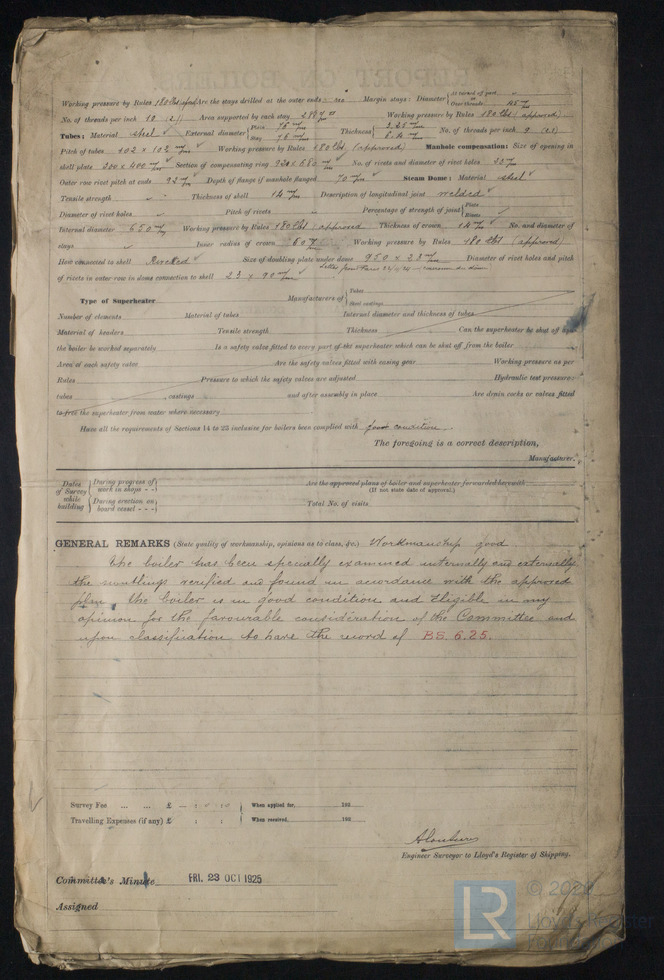 Working pressure by Rules 180 lbs Are the stays drilled at the outer ends Margin stays: Diameter {At turned off part, or Over threads
No. of threads per inch 10 Area supported by each stay Working pressure by Rules 180 lbs (approved)
Tubes: Material steel External diameter {Plain 76 m/m Stay 76 m/m Thickness {3.25 m/m No. of threads per inch 9
Pitch of tubes 102 x 102 m/m Working pressure by Rules 180 lbs (approved) Manhole compensation: Size of opening in
shell plate 300 x 400 m/m Section of compensating ring No. of rivets and diameter of rivet holes
Outer row rivet pitch at ends 92 m/m Depth of flange if manhole flanged 70 m/m Steam Dome: Material steel
Tensile strength Thickness of shell 14 m/m Description of longitudinal joint welded
Diameter of rivet holes Pitch of rivets Percentage of strength of joint {Plate Rivets
Internal diameter 650 m/m Working pressure by Rules 180 lbs (approved Thickness of crown 14 m/m No. and diameter of
stays Inner radius of crown Working pressure by Rules 180 lbs (approved)
How connected to shell Riveted Size of doubling plate under dome 950 x 23 m/m Diameter of rivet holes and pitch
of rivets in outer row in dome connection to shell 23 x 90 m/m
Type of Superheater Manufacturers of {Tubes Steel castings
Number of elements Material of tubes Internal diameter and thickness of tubes
Material of headers Tensile strength Thickness Can the superheater be shut off and
the boiler be worked separately Is a safety valve fitted to every part of the superheater which can be shut off from the boiler
Area of each safety valve Are the safety valves fitted with easing gear Working pressure as per
Rules Pressure to which the safety valves are adjusted Hydraulic test pressure:
tubes , castings and after assembly in place Are drain cocks or valves fitted
to free the superheater from water where necessary
Have all the requirements of Sections 14 to 22 inclusive for boilers been complied with condition
The foregoing is a correct description,
Manufacturer.
Dates of Survey while building {During progress of work in shops - - Are the approved plans of boiler and superheater forwarded herewith
(If not state date of approval.)
During erection on board vessel - - - Total No. of visits
GENERAL REMARKS (State quality of workmanship, opinions as to class, &c.) Workmanship good
The boiler has been specially examined internally and externally
the scantlings verified and found in accordance with the approved
plan. the boiler is in good condition and Eligible in my
opinion for the favourable consideration of the Committee and
upon classification to have the record of BS. 6.25.
Survey Fee ... ... £ : : When applied for, 192
Travelling Expenses (if any) £ : : When received, 192
Engineer Surveyor to Lloyd's Register of Shipping.
Committee's Minute FRI. 23 OCT 1925
Assigned
LR
Lloyd's Register